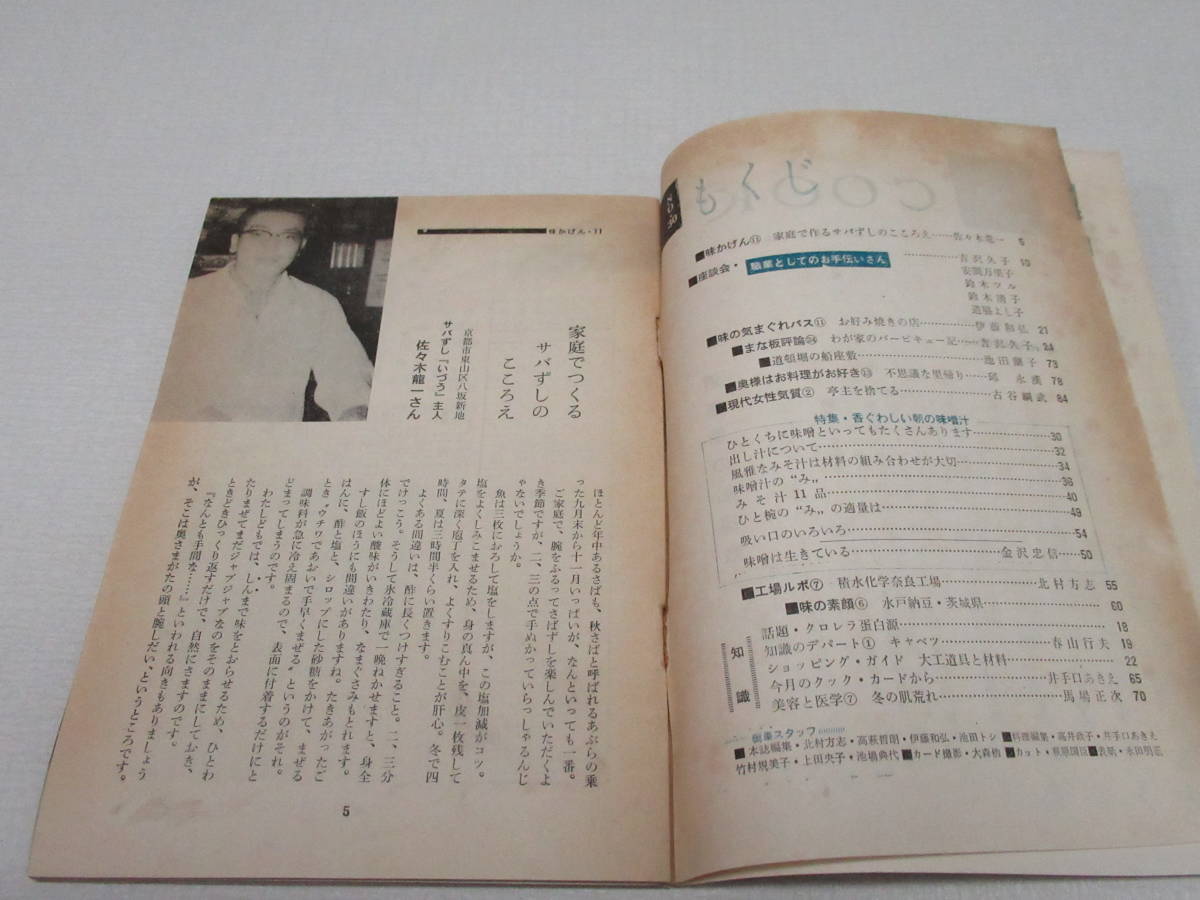 もくじ
COOK
NO.30
■味かげん⑪ 家庭で作るサバずしのこころえ……佐々木竜一 5
■座談会・職業としてのお手伝いさん……吉沢久子 10
安岡万里子
鈴木ツル
鈴木清子
道脇よし子
■味の気まぐれバス⑪ お好み焼きの店……伊藤和弘 21
■まな板評論㉔ わが家のバーベキュー記……吉沢久子 24
■道頓堀の船座敷……池田蘭子 73
■奥様はお料理がお好き⑬ 不思議な里帰り……邱 永漢 78
■現代女性気質② 亭主を捨てる……古谷綱武 84
特集・香ぐわしい朝の味噌汁
ひとくちに味噌といってもたくさんあります……30
出し汁について……32
風雅なみそ汁は材料の組み合わせが大切……34
味噌汁の“み”……36
みそ汁11品……40
ひと椀の“み”の適量は……49
吸い口のいろいろ……54
味噌は生きている……金沢忠信…50
■工場ルポ⑦ 積水化学奈良工場……北村方志 55
■味の素顔⑥ 水戸納豆・茨城県……60
知識
話題・クロレラ蛋白源……18
知識のデパート① キャベツ……春山行夫 19
ショッピング・ガイド 大工道具と材料……22
今月のクック・カードから……井手口あきえ 65
美容と医学⑦ 冬の肌荒れ……馬場正次 70
執筆スタッフ
■本誌編集・北村方志・高萩哲朗・伊藤和弘・池田トシ■料理編集・高井鉄子・井手口あきえ
竹村規美子・上田央子・池場典代■カード撮影・大森侑■カット・萩原国臣■表紙・永田明正
味かげん・11
家庭でつくる
サバずしの
こころえ
京都市東山区八坂新地
サバずし「いづう」主人
佐々木龍一さん
ほとんど年中あるさばも、秋さばと呼ばれるあぶらの乗
った九月末から十一月いっぱいが、なんといっても一番。
ご家庭で、腕をふるってさばずしを楽しんでいただくよ
き季節ですが、二、三の点で手ぬかっていらっしゃるんじ
ゃないでしょうか。
魚は三枚におろして塩をしますが、この塩加減がコツ。
塩をよくしみこませるため、身の真ん中を、皮一枚残して
タテに深く庖丁を入れ、よくすりこむことが肝心。冬で四
時間、夏は三時間半くらい置きます。
よくある間違いは、酢に長くつけすぎること。二、三分
でけっこう。そうして氷冷蔵庫で一晩ねかせますと、身全
体にほどよい酸味がいきわたり、なまぐさみもとれます。
すし飯のほうにも間違いがありますね。たきあがったご
はんに、酢と塩と、シロップにした砂糖をかけて、まぜる
とき〝ウチワであおいで手早くまぜる〟というのがそれ。
調味料が急に冷え固まるので、表面に付着するだけにと
どまってしまうのです。
わたしどもでは、しんまで味をとおらせるため、ひとわ
たりまぜてまだジャブジャブなのをそのままにしておき、
ときどきひっくり返すだけで、自然にさますのです。
『なんとも手間な……』といわれる向きもありましょう
が、そこは奥さまがたの頭と腕しだい、というところです。
5